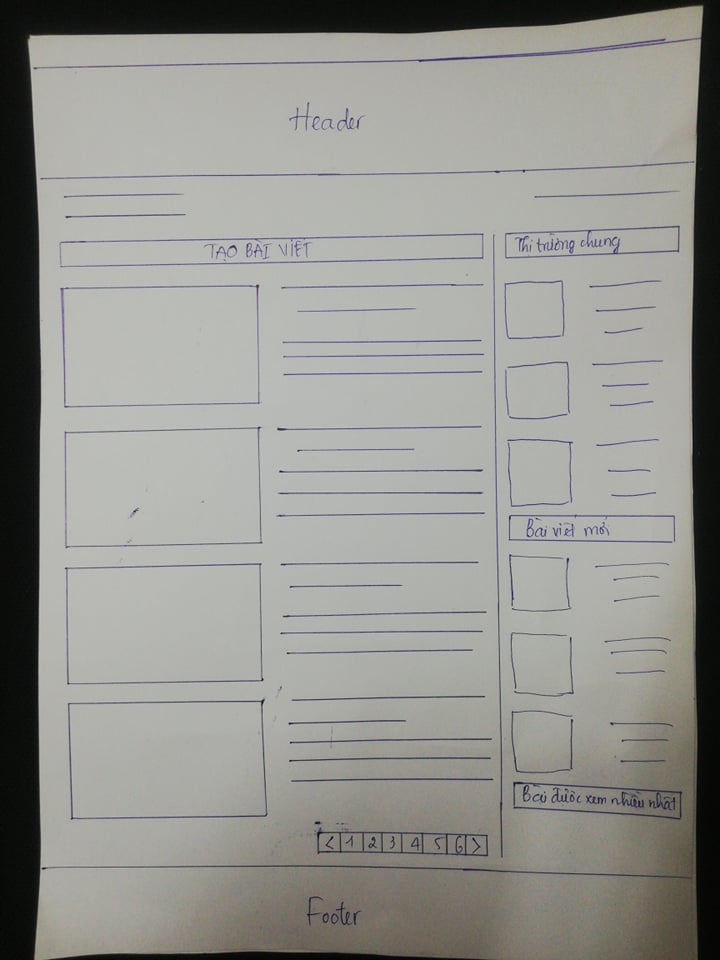 Header
TẠO BÀI VIẾT
Thị trường chung
Bài viết mới
Bài được xem nhiều nhất
< 1 2 3 4 5 6 >
Footer